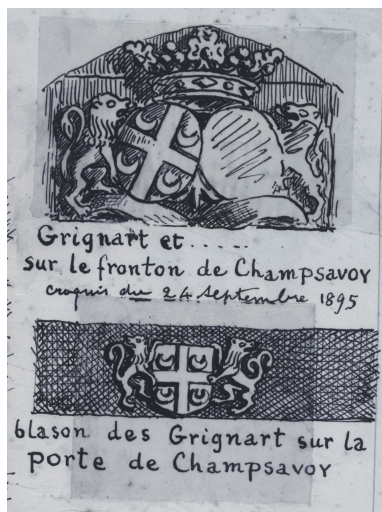 Grignart et . . . . . .
sur le fronton de Champsavoy
croquis du 24 Septembre 1895
blason des Grignart sur la
porte de Champsavoy